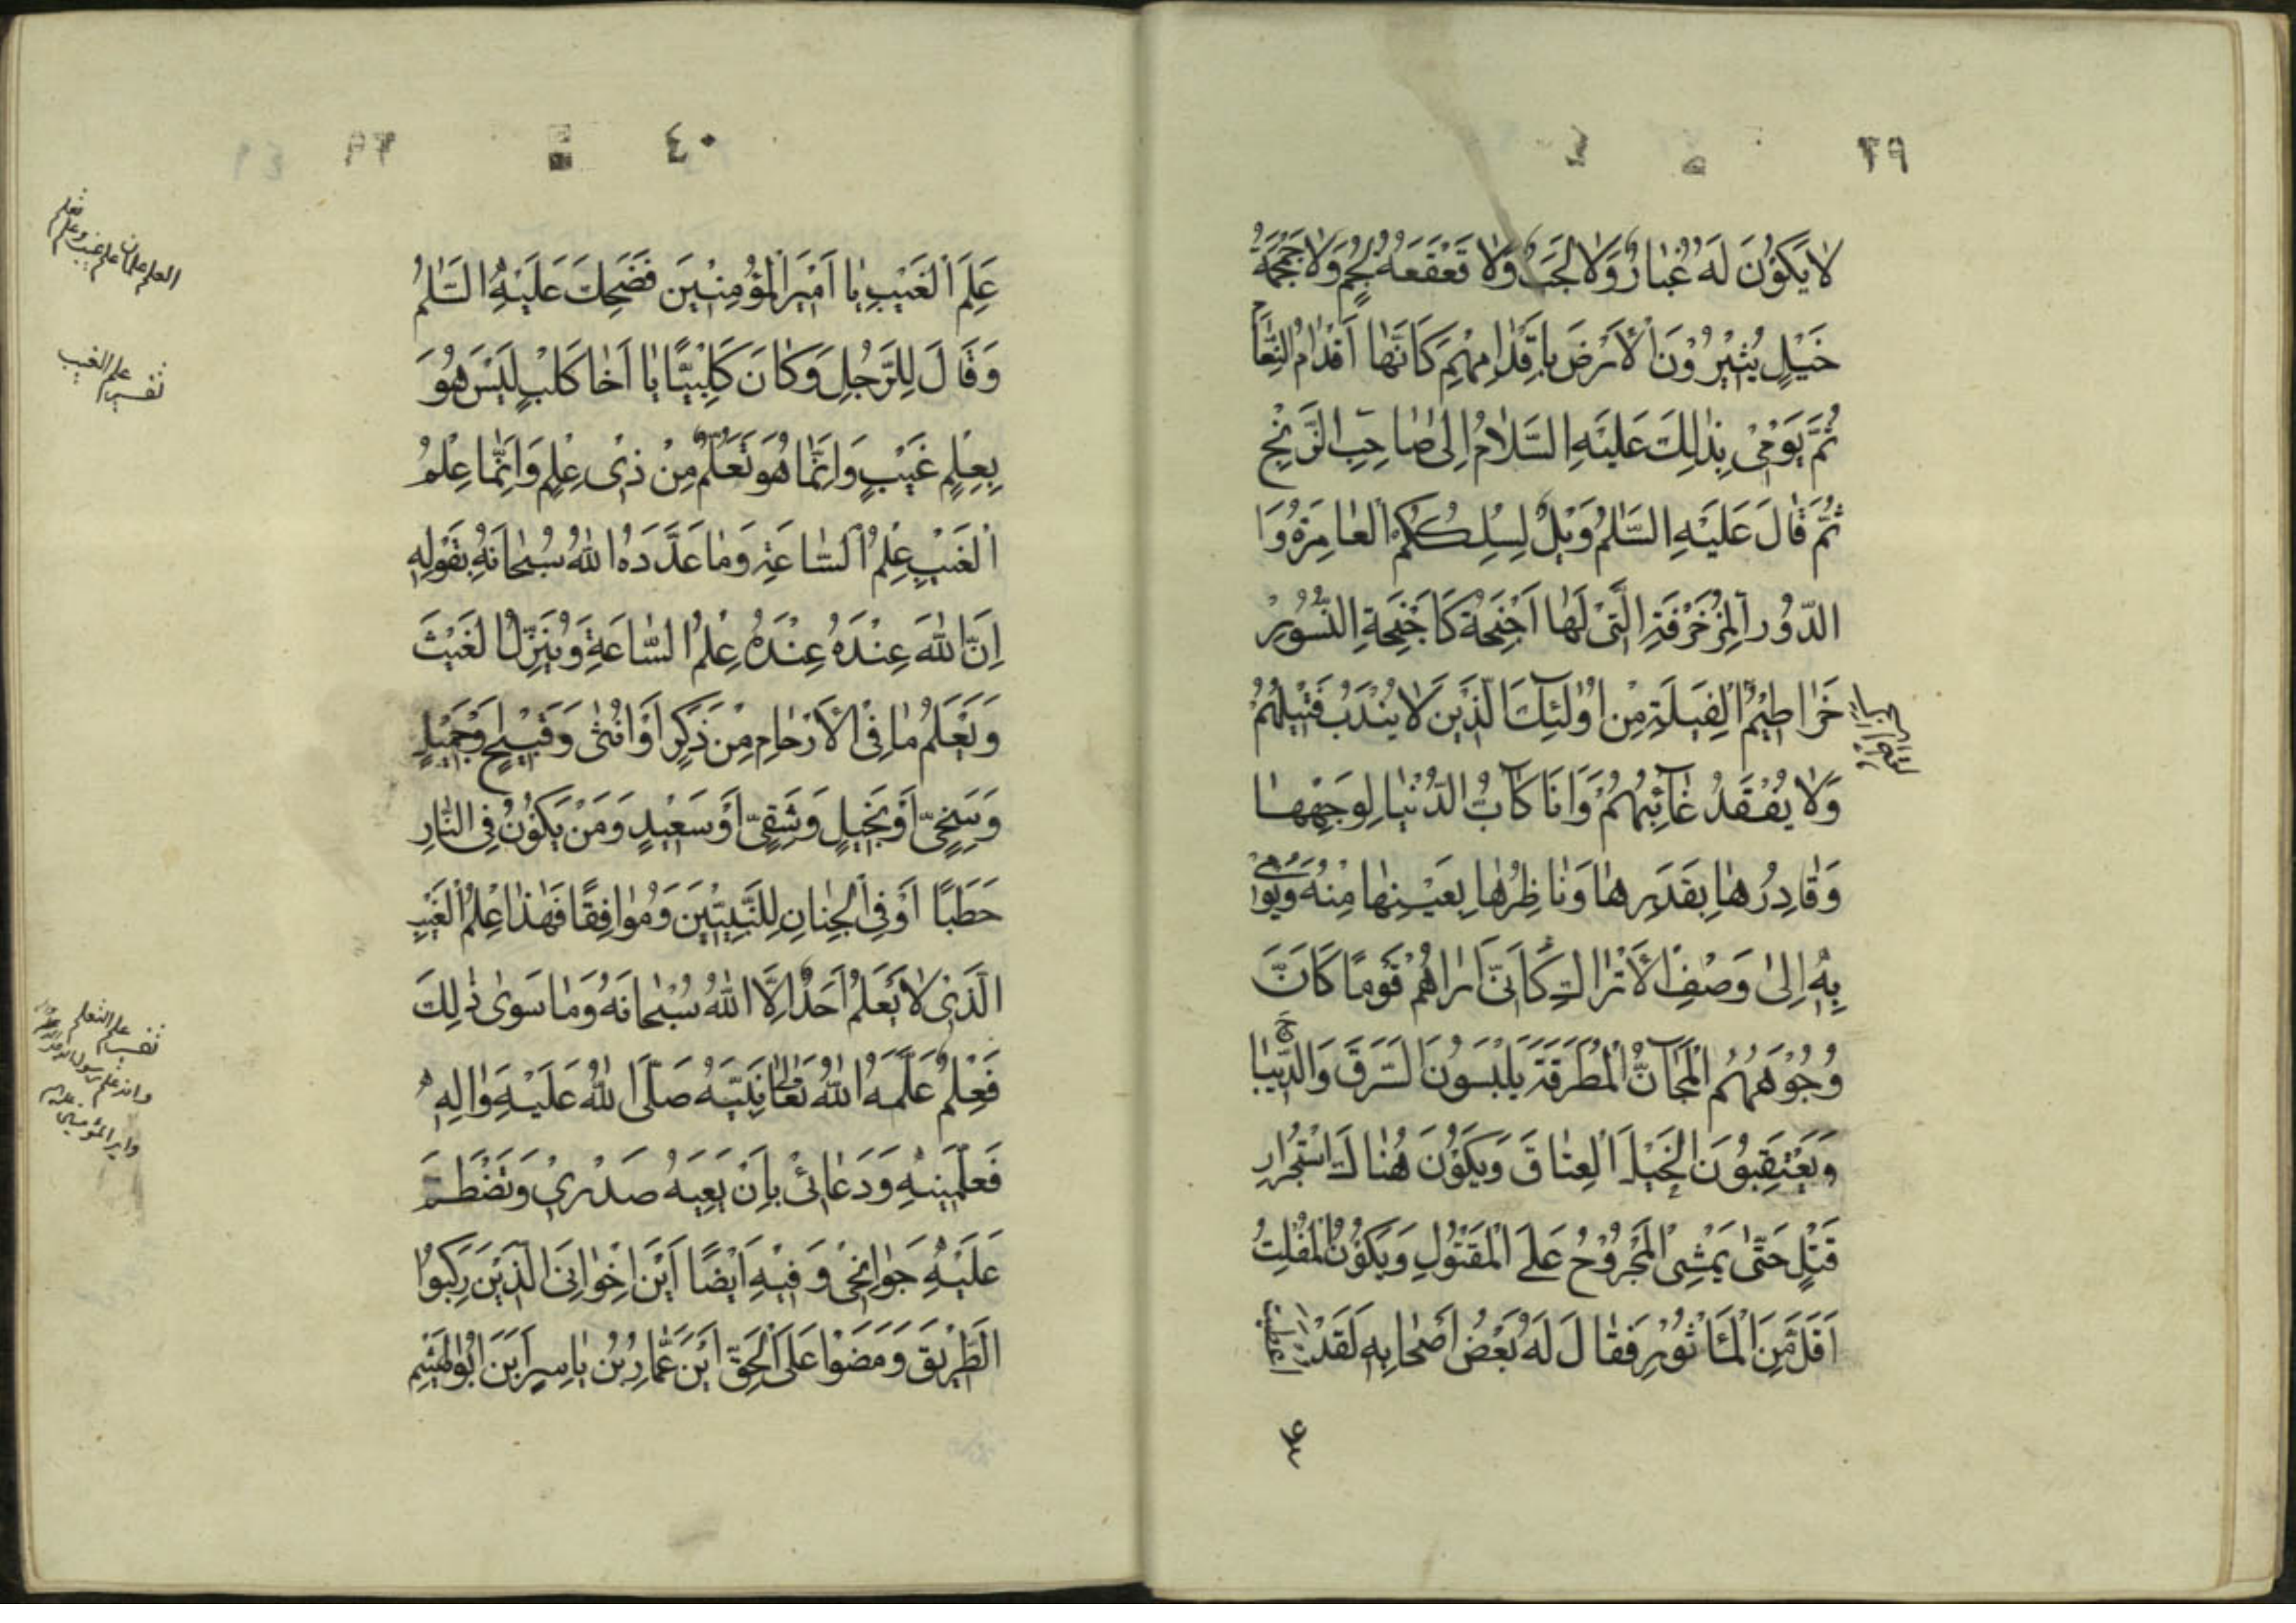 ٣٩
لا يَكُونُ لَهُ غُبَارٌ وَلا لَجَبٌ وَلا قَعْقَعَةُ لُجُمٍ وَلا حَمْحَمَةُ
خَيْلٍ يُثِيرُونَ الْأَرْضَ بِاَقْدَامِهِمْ كَاَنَّهَا اَقْدَامُ النَّعَامِ
ثُمَّ يَوْمِئُ بِذٰلِكَ عَلَيْهِ السَّلَامُ اِلٰى صَاحِبِ الزَّنْجِ
ثُمَّ قَالَ عَلَيْهِ السَّلٰمُ وَيْلٌ لِسِكَكِكُمُ الْعَامِرَةِ وَ
الدُّورِ الْمُزَخْرَفَةِ الَّتِى لَهَا اَجْنِحَةٌ كَاَجْنِحَةِ النُّسُورِ
خَرَاطِيمُ الْفِيَلَةِ مِنْ اُولٰئِكَ الَّذِينَ لَا يُنْدَبُ قَتِيلُهُمْ
وَلَا يُفْقَدُ غَآئِبُهُمْ وَاَنَا كَابُّ الدُّنْيَا لِوَجْهِهَا
وَقَادِرُهَا بِقَدَرِهَا وَنَاظِرُهَا بِعَيْنِهَا مِنْهُ وَيَوْمِى
بِهِ اِلٰى وَصْفِ الْأَتْرَاكِ كَاَنِّى اَرَاهُمْ قَوْمًا كَاَنَّ
وُجُوهَهُمُ الْمَجَانُّ الْمُطْرَقَةُ يَلْبَسُونَ السَّرَقَ وَالدِّيبَاجَ
وَيَعْتَقِبُونَ الْخَيْلَ الْعِتَاقَ وَيَكُونُ هُنَاكَ اسْتِحْرَارُ
قَتْلٍ حَتّٰى يَمْشِىَ الْمَجْرُوحُ عَلَى الْمَقْتُولِ وَيَكُونُ الْمُفْلِتُ
اَقَلَّ مِنَ الْمَأْسُورِ فَقَالَ لَهُ بَعْضُ اَصْحَابِهِ لَقَدْ اُعْطِيتَ
٤٠
عِلْمَ الْغَيْبِ يَا اَمِيرَ الْمُؤْمِنِينَ فَضَحِكَ عَلَيْهِ السَّلٰمُ
وَقَالَ لِلرَّجُلِ وَكَانَ كَلْبِيًّا يَا اَخَا كَلْبٍ لَيْسَ هُوَ
بِعِلْمِ غَيْبٍ وَاِنَّمَا هُوَ تَعَلُّمٌ مِنْ ذِى عِلْمٍ وَاِنَّمَا عِلْمُ
الْغَيْبِ عِلْمُ السَّاعَةِ وَمَا عَدَّدَهُ اللهُ سُبْحَانَهُ بِقَوْلِهِ
اِنَّ اللهَ عِنْدَهُ عِنْدَهُ عِلْمُ السَّاعَةِ وَيُنَزِّلُ الْغَيْثَ
وَيَعْلَمُ مَا فِى الْأَرْحَامِ مِنْ ذَكَرٍ اَوْ اُنْثٰى وَقَبِيحٍ وَجَمِيلٍ
وَسَخِىٍّ اَوْ بَخِيلٍ وَشَقِىٍّ اَوْ سَعِيدٍ وَمَنْ يَكُونُ فِى النَّارِ
حَطَبًا اَوْ فِى الْجِنَانِ لِلنَّبِيِّينَ وَمُوَافِقًا فَهٰذَا عِلْمُ الْغَيْبِ
الَّذِى لَا يَعْلَمُ اَحَدٌ اِلَّا اللهُ سُبْحَانَهُ وَمَا سَوٰى ذٰلِكَ
فَعِلْمٌ عَلَّمَهُ اللهُ تَعَالٰى نَبِيَّهُ صَلَّى اللهُ عَلَيْهِ وَاٰلِهِ
فَعَلَّمَنِيهِ وَدَعَا لِى بِاَنْ يَعِيَهُ صَدْرِى وَتَضْطَمَّ
عَلَيْهِ جَوَانِحِى وَفِيهِ اَيْضًا اَيْنَ اِخْوَانِىَ الَّذِينَ رَكِبُوا
الطَّرِيقَ وَمَضَوْا عَلَى الْحَقِّ اَيْنَ عَمَّارُ بْنُ يَاسِرٍ اَيْنَ ابُو الْهَيْثَمِ
العلم علمان علم غيب وعلم تعلم
تفسير علم الغيب
تفسير علم التعلم